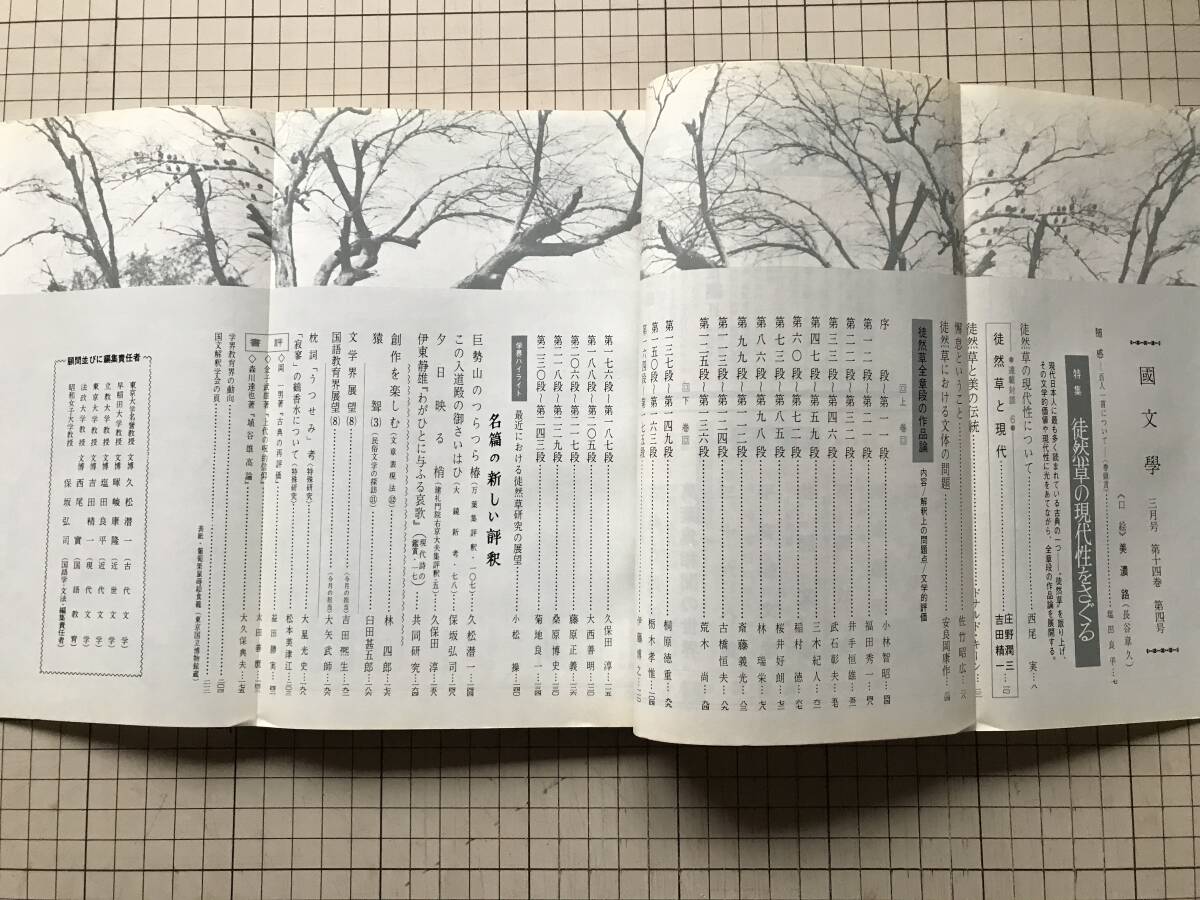 國文學
三月号 第十四巻 第四号
《口絵》美濃路(長谷章久)
随感
塩田良平…七
特集
徒然草の現代性をさぐる
現代日本人に最も多く読まれている古典の一つ――。“徒然草”を取り上げ、
その文学的価値や現代性に光をあてながら、全章段の作品論を展開する。
徒然草の現代性について
西尾実…八
●連載対談 6●
徒然草と現代
庄野潤三
吉田精一
徒然草と美の伝統
ドナルド・キーン
懈怠ということ
佐竹昭広
徒然草における文体の問題
安良岡康作
徒然草全章段の作品論
内容/解釈上の問題点/文学的評価
上巻
序段~第一一段
小林智昭
第一二段~第二一段
福田秀一
第二二段~第三二段
井手恒雄
第三三段~第四六段
武石彰夫
第四七段~第五九段
三木紀人
第六〇段~第七二段
稲村徳
第七三段~第八五段
桜井好朗
第八六段~第九八段
林瑞栄
第九九段~第一一二段
斎藤義光
第一一三段~第一二四段
古橋恒夫
第一二五段~第一三六段
荒木尚
下巻
第一三七段~第一四九段
桐原徳重
第一五〇段~第一六三段
栃木孝惟
第一六四段~第一七五段
伊藤博之
第一七六段~第一八七段
久保田淳
第一八八段~第二〇五段
大西善明
第二〇六段~第二一七段
藤原正義
第二一八段~第二二九段
桑原博史
第二三〇段~第二四三段
菊地良一
学界ハイライト
最近における徒然草研究の展望
小松操
名篇の新しい評釈
巨勢山のつらつら椿(万葉集評釈・一〇七)
久松潜一
この入道殿の御さいはひ(大鏡新考・七八)
保坂弘司
夕日映る梢(建礼門院右京大夫集評釈・五)
久保田淳
伊東静雄『わがひとに与ふる哀歌』(現代詩の鑑賞・一七)
共同研究
創作を楽しむ(文章表現法⑫)
林四郎
猿聟(3)(民俗文学の探訪⑪)
臼田甚五郎
文学界展望(8)
(今月の担当)吉田凞生
国語教育界展望(8)
(今月の担当)大矢武師
枕詞「うつせみ」考(特殊研究)
大星光史
「寂寥」の鶴香水について(特殊研究)
松本美津江
書評
◇岡一男著『古典の再評価』
◇金子武雄著『上代の呪的信仰』
益田勝実
◇森川達也著『埴谷雄高論』
大久保典夫
学界教育界の動向
国文解釈学会の頁
表紙・葡萄栗鼠蒔絵食籠(東京国立博物館蔵)
顧問並びに編集責任者
東京大学名誉教授 文博 久松潜一(古代文学)
早稲田大学教授 文博 暉峻康隆(近世文学)
立教大学教授 文博 塩田良平(近代文学)
東京大学教授 文博 吉田精一(現代文学)
法政大学教授 文博 西尾實(国語教育)
昭和女子大学教授 保坂弘司(国語学・文法・編集責任者)